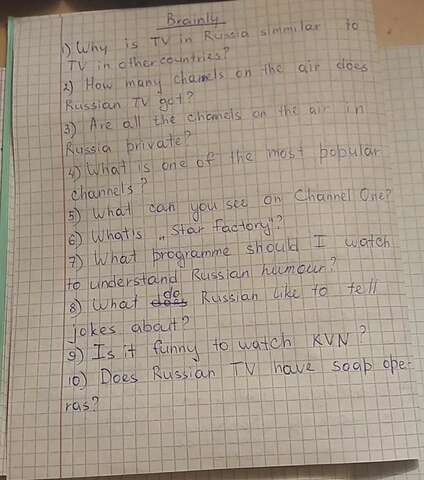 Brainly
1) Why is TV in Russia simmilar to
TV in other countries?
2) How many chamels on the air does
Russian TV got?
3) Are all the chamels on the air in
Russia private?
4) What is one of the most popular
channels?
5) What can you see on Channel One?
6) What's „Star Factory"?
7) What programme should I watch
to understand Russian humour?
8) What do Russian like to tell
jokes about?
9) Is it funny to watch KVN?
10) Does Russian TV have soap ope-
ras?